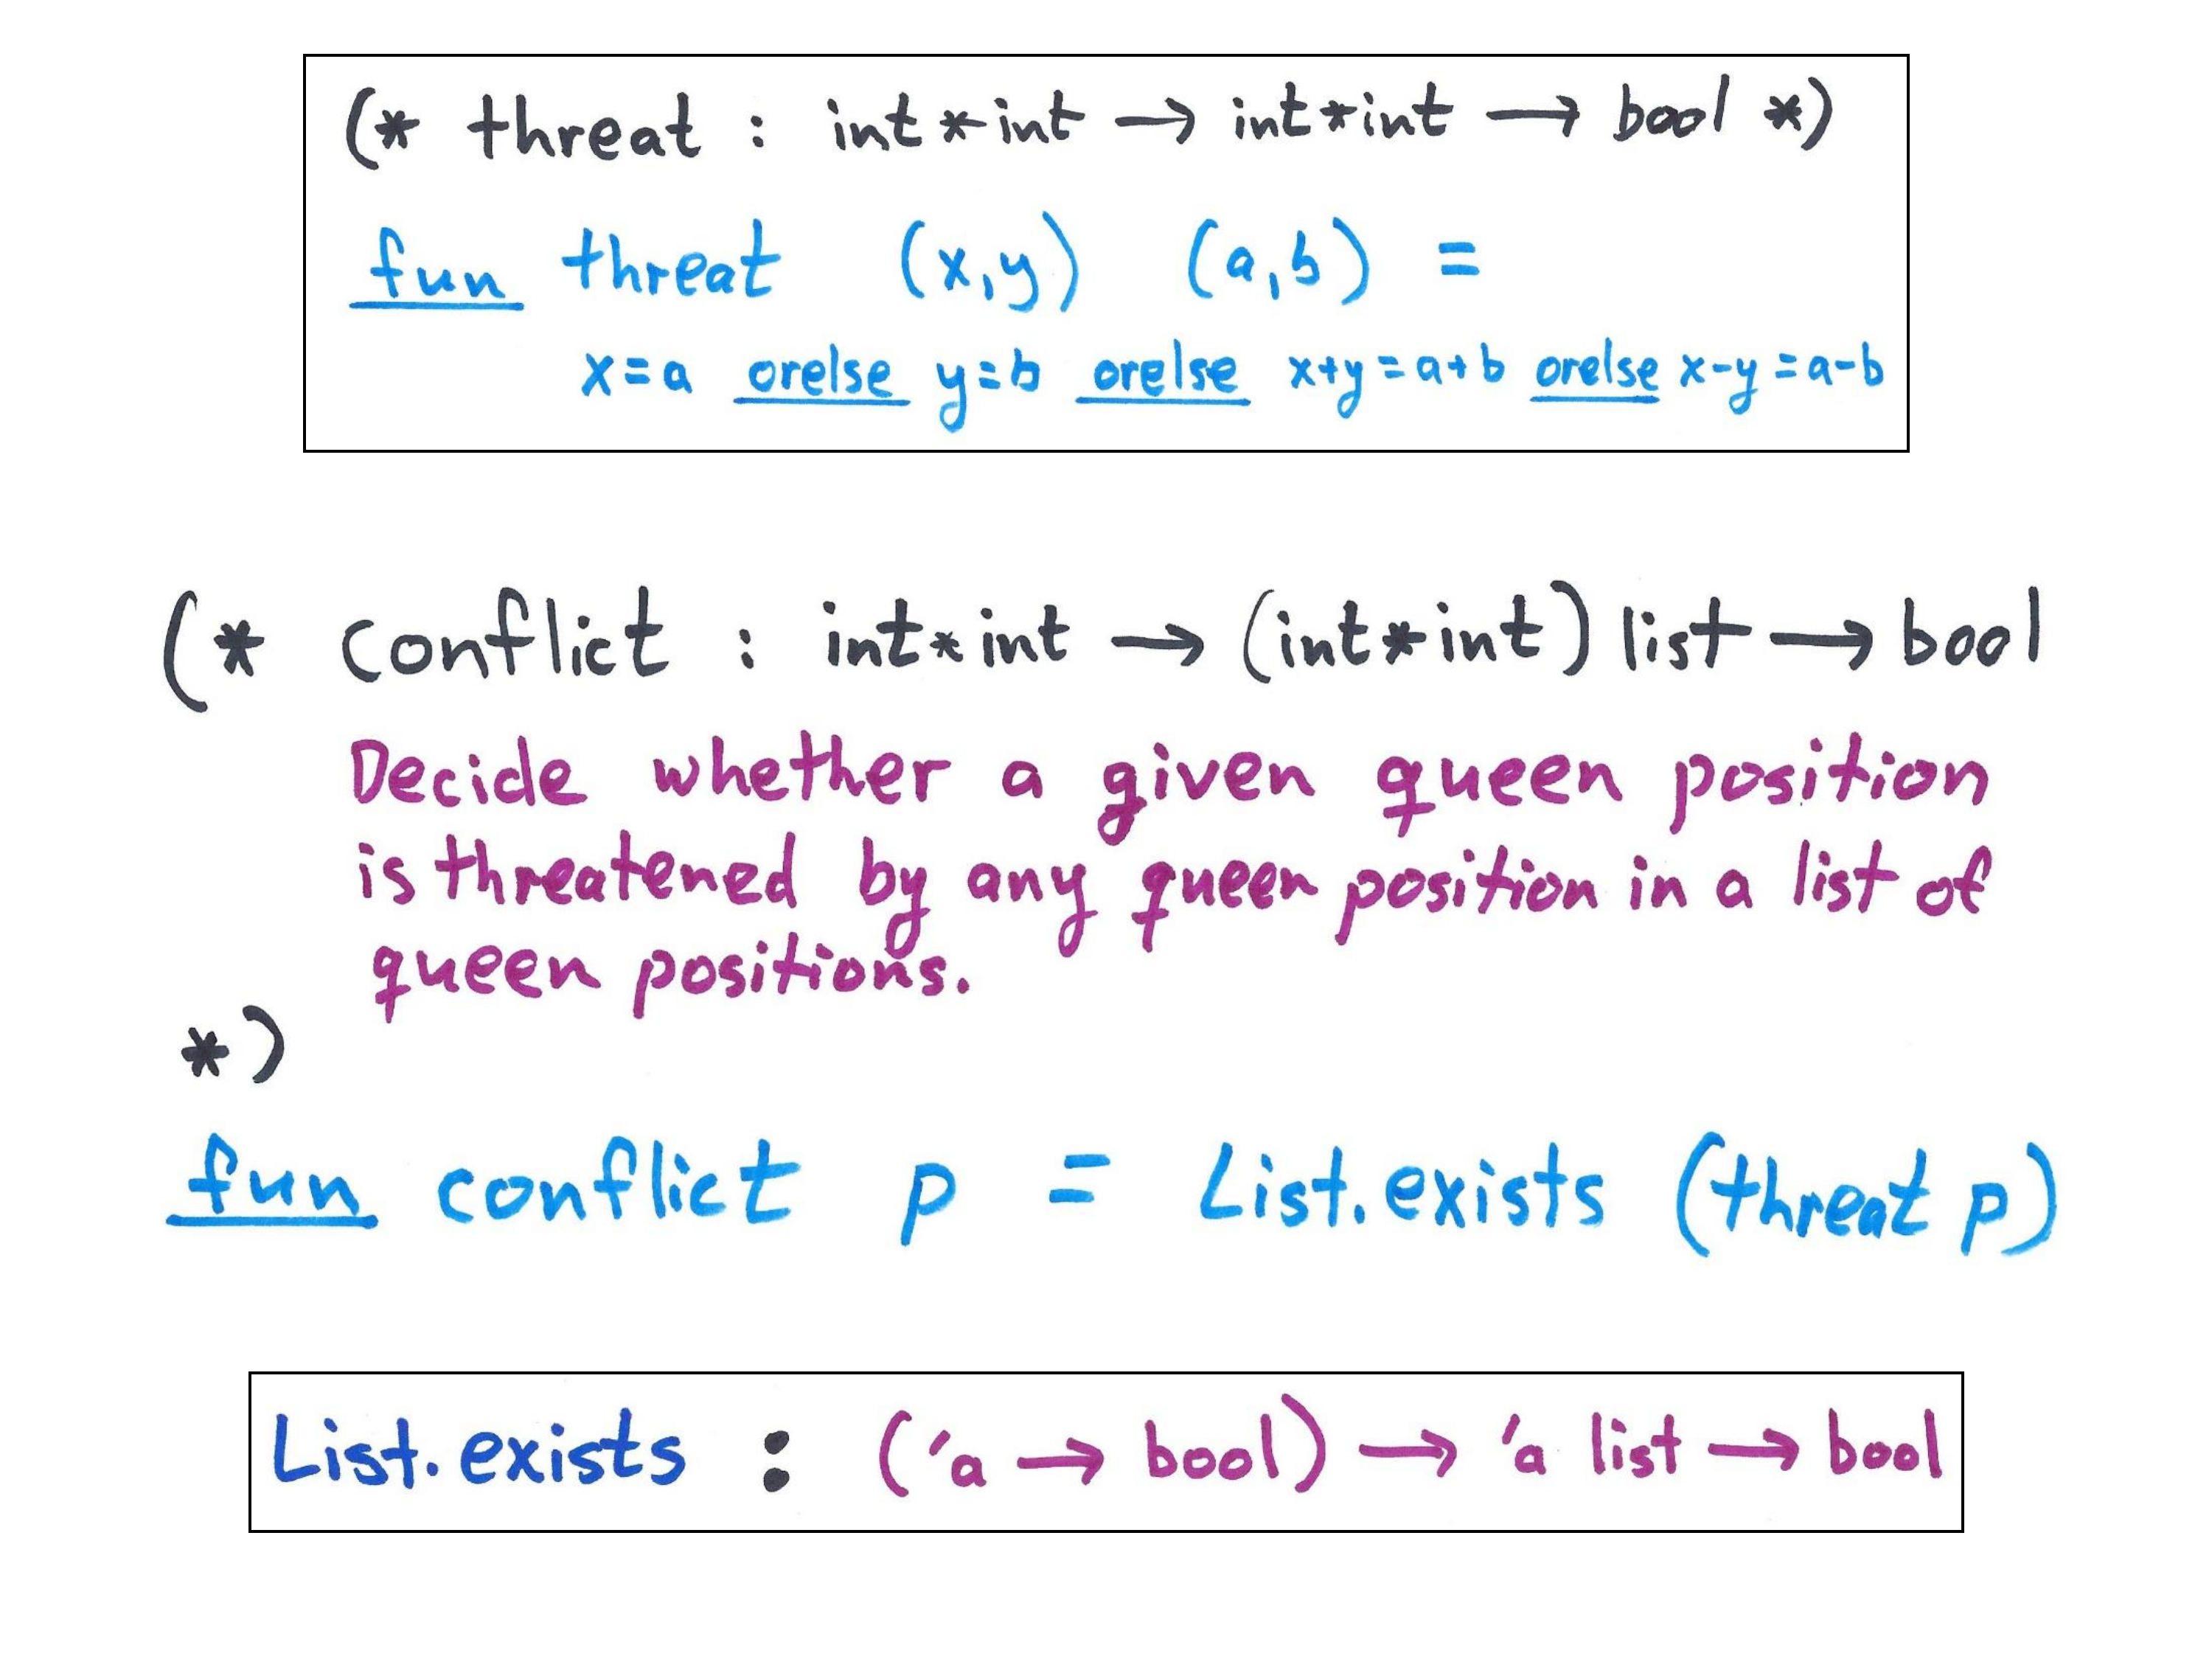 (* threat : int * int → int * int → bool *)
fun threat (x,y) (a,b) =
x=a orelse y=b orelse x+y=a+b orelse x-y=a-b
(* conflict : int * int → (int * int) list → bool
Decide whether a given queen position
is threatened by any queen position in a list of
queen positions.
*)
fun conflict p = List.exists (threat p)
List.exists : ('a → bool) → 'a list → bool